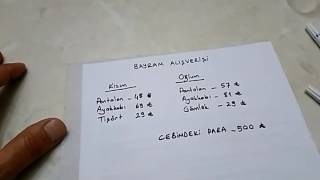 BAYRAM ALIŞVERİŞİ
Kızım
Pantalon - 48 ₺
Ayakkabı 69 ₺
Tişört 29 ₺
Oğlum
Pantalon - 57 ₺
Ayakkabı - 81 ₺
Gömlek - 29 ₺
CEBİNDEKİ PARA - 500 ₺